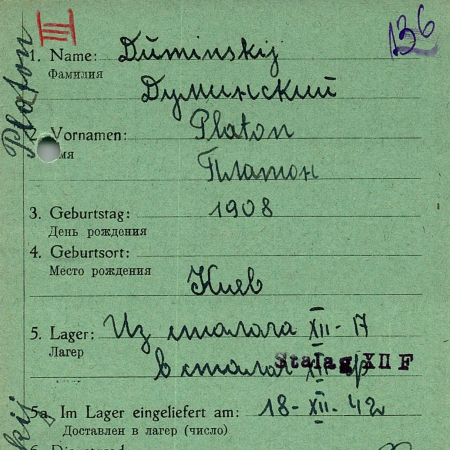 III
136
Platon
1. Name: Duminskij
Фамилия
Думинский
Vornamen: Platon
мя
Платон
3. Geburtstag: 1908
День рождения
4. Geburtsort:
Место рождения
Киев
5. Lager: Из сталага XII-17
Лагер
в сталаг XII
Stalag XII F
5a. Im Lager eingeliefert am: 18-XII-42
Доставлен в лагер (число)
kij